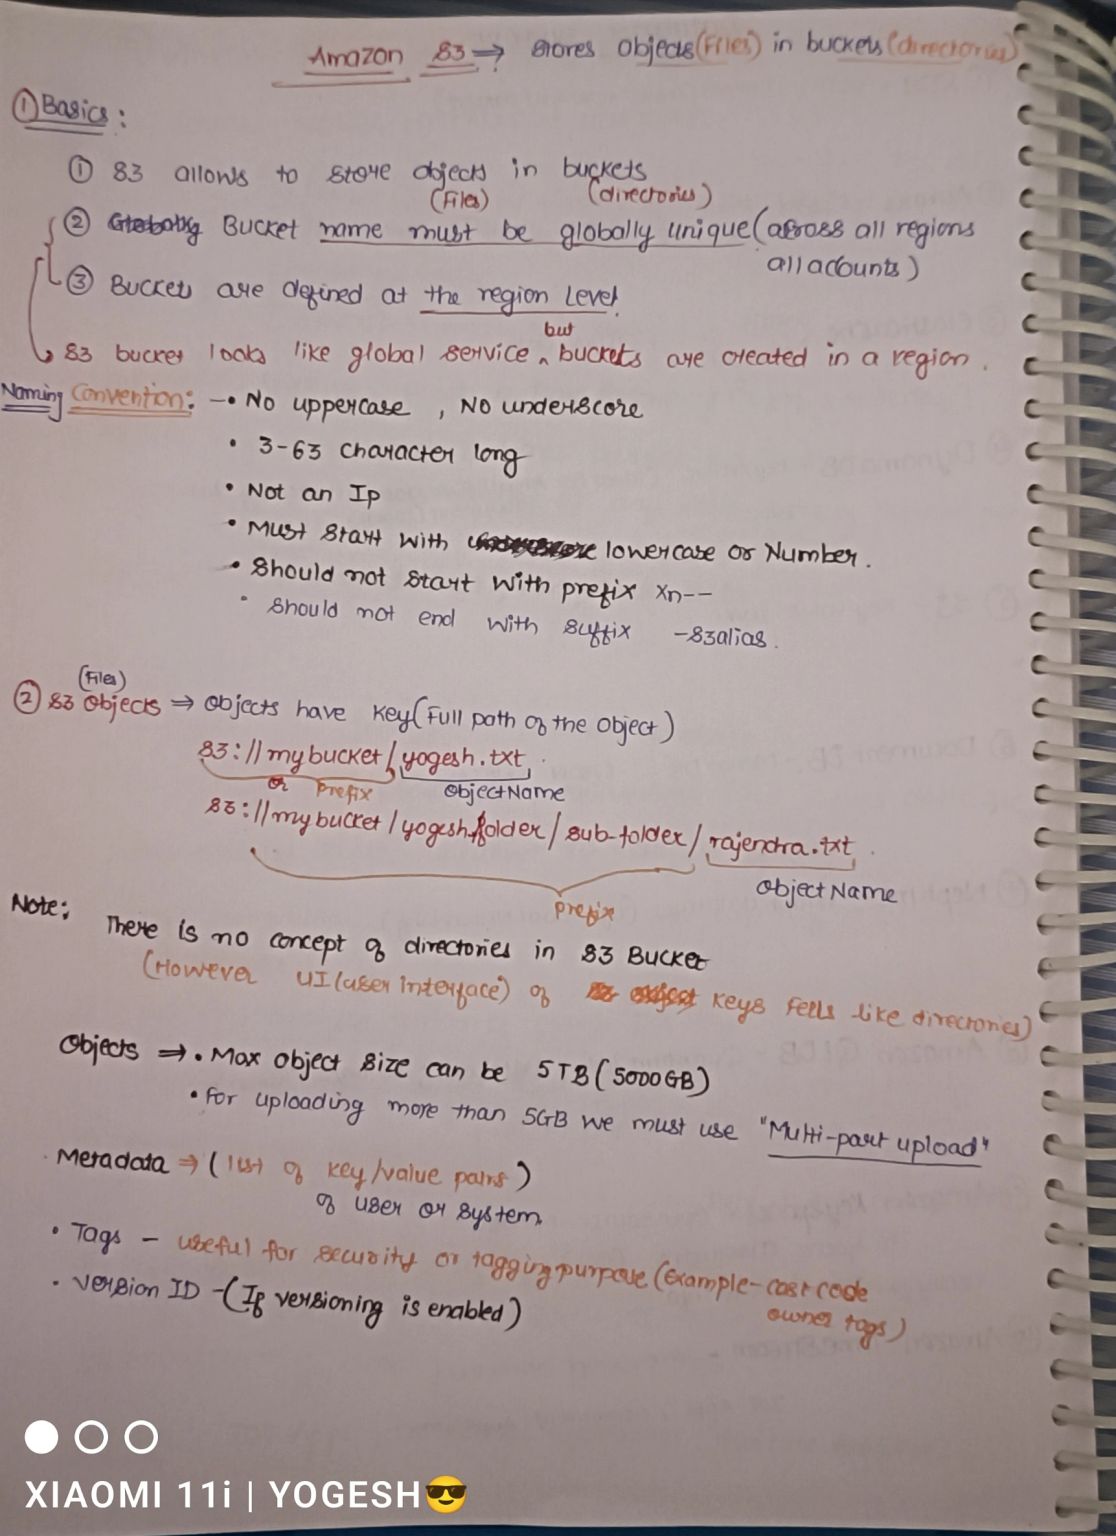 Amazon S3 → stores objects(Files) in buckets(directories)
① Basics:
① S3 allows to store objects in buckets
(Files) (directories)
② Bucket name must be globally unique (across all regions
all accounts)
③ Buckets are defined at the region Level
but
↳ S3 bucket looks like global service ^ buckets are created in a region.
Naming Convention: - • No uppercase, No underscore
• 3-63 character long
• Not an Ip
• Must start with lowercase or Number.
• Should not start with prefix xn--
• Should not end with suffix -s3alias.
(Files)
② S3 Objects ⇒ Objects have Key (Full path of the object)
S3://mybucket/yogesh.txt
or prefix ObjectName
S3://mybucket/yogesh.folder/sub-folder/rajendra.txt
ObjectName
Prefix
Note:
There is no concept of directories in S3 Bucket
(However UI (user interface) of keys Feels like directories)
Objects ⇒ • Max object size can be 5TB (5000GB)
• For uploading more than 5GB we must use "Multi-part upload"
Metadata ⇒ (list of key/value pairs)
of user or system
• Tags - useful for security or tagging purpose (Example- cost code
owner tags)
• Version ID - (If versioning is enabled)
XIAOMI 11i | YOGESH😎